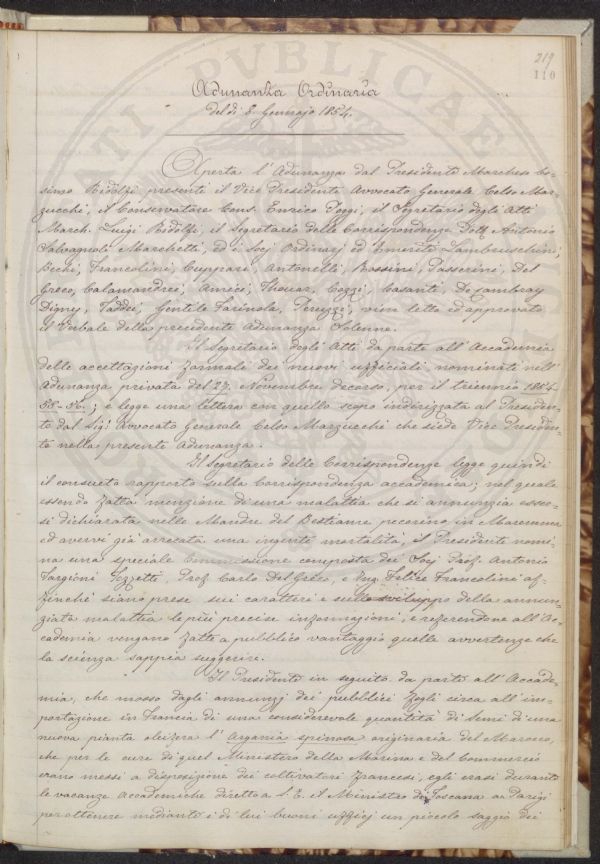 219
110
Adunanza Ordinaria
del dì 8. Gennajo 1854.
Aperta l'Adunanza dal Presidente Marchese Co-
simo Ridolfi, presenti il Vice Presidente Avvocato Generale Celso Mar-
zucchi, il Conservatore Cons. Enrico Poggi, il Segretario degli Atti
March. Luigi Ridolfi, il Segretario delle Corrispondenze Dott. Antonio
Salvagnoli Marchetti, ed i Socj Ordinarj ed Emeriti Lambruschini,
Bechi, Francolini, Cuppari, Antonelli, Rossini, Passerini, Del
Greco, Calamandrei, Amici, Thouar, Cozzi, Casanti, De Cambray
Digny, Taddei, Gentile Farinola, Peruzzi, vien letto ed approvato
il Verbale della precedente Adunanza Solenne.
Il Segretario degli Atti da parte all'Accademia
delle accettazioni formali dei nuovi uffiziali nominati nell'
Adunanza privata del 27. Novembre decorso, per il triennio 1854-
55-56.; e legge una lettera con quello scopo indirizzata al Presiden-
te dal Sig. Avvocato Generale Celso Marzucchi che siede Vice Presiden-
te nella presente Adunanza.
Il Segretario delle Corrispondenze legge quindi
il consueto rapporto sulla Corrispondenza accademica; nel quale
essendo fatta menzione di una malattia che si annunzia esser-
si dichiarata nelle Mandre del Bestiame pecorino in Maremma
ed avervi già arrecata una ingente mortalità, il Presidente nomi-
na una speciale Commissione composta dei Socj Prof. Antonio
Targioni Tozzetti, Prof. Carlo Del Greco, e Ing. Felice Francolini af-
finchè siano prese sui caratteri e sullo sviluppo della annun-
ziata malattia le più precise informazioni, e referendone all'Ac-
cademia vengano fatte a pubblico vantaggio quelle avvertenze che
la scienza sappia suggerire.
Il Presidente in seguito da parte all'Accade-
mia, che mosso dagli annunzj dei pubblici Fogli circa all'im-
portazione in Francia di una considerevole quantità di Semi di una
nuova pianta oleifera l'Argania spinosa originaria del Marocco,
che per le cure di quel Ministero della Marina e del Commercio
erano messi a disposizione dei coltivatori Francesi, egli erasi durante
le vacanze Accademiche diretto a S. E. il Ministro di Toscana a Parigi
per ottenere mediante i di lui buoni ufficj un piccolo saggio dei